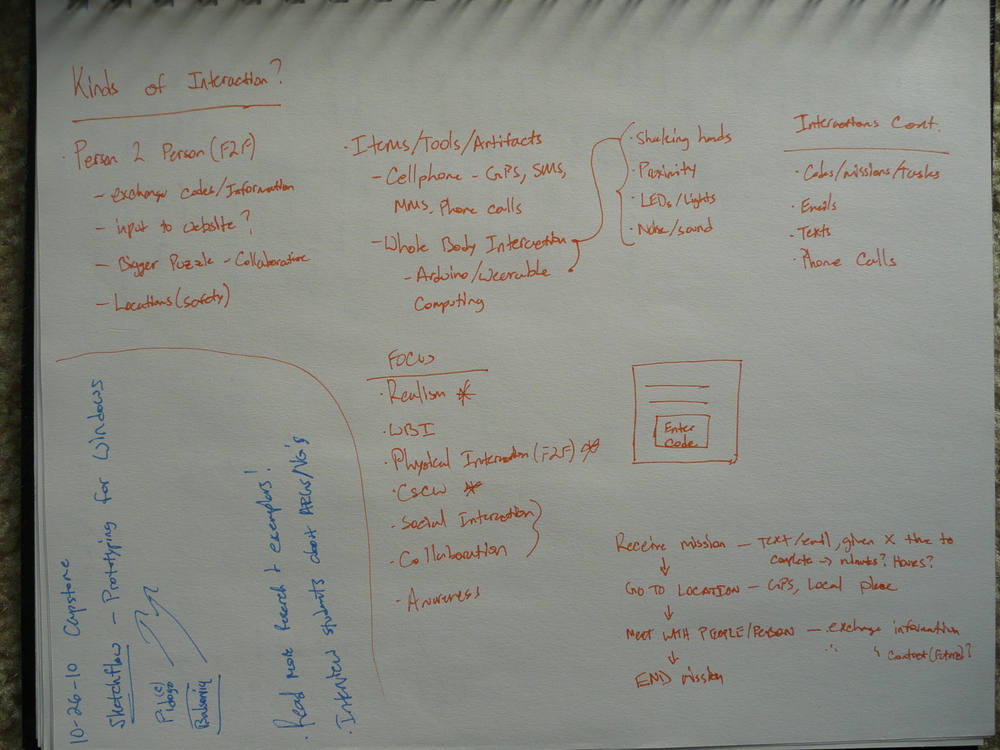 Kinds of Interaction?
· Person 2 Person (F2F)
- exchange codes/Information
- input to website?
- Bigger Puzzle - Collaborative
- Locations (safety)
· Items/Tools/Artifacts
- Cellphone - GPS, SMS,
MMS, Phone calls
- Whole Body Interaction
- Arduino/Wearable
Computing
· Shaking hands
· Proximity
· LEDs/Lights
· Noise/sound
Interactions Cont.
· Codes/missions/tasks
· Emails
· Texts
· Phone Calls
FOCUS
· Realism *
· WBI
· Physical Interaction (F2F) *
· CSCW *
· Social Interaction
· Collaboration
· Awareness
Enter
Code
Receive mission - Text/email, given X time to
complete → minutes? Hours?
↓
GO TO LOCATION - GPS, Local place
↓
MEET WITH PEOPLE/PERSON - exchange information
↳ contact (future)?
↓
END mission
10-26-10 Capstone
Sketchflow - Prototyping for Windows
Balsamiq
· Read more research + exemplars!
· Interview students about